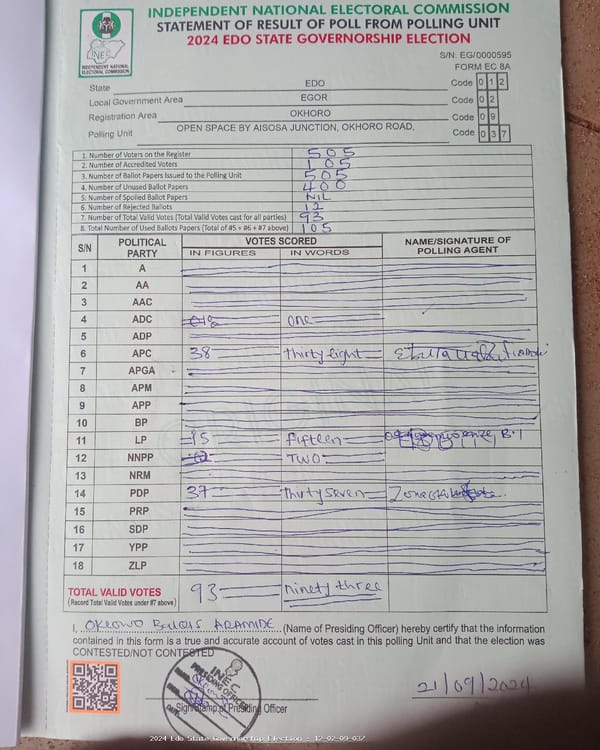 INDEPENDENT NATIONAL ELECTORAL COMMISSION
STATEMENT OF RESULT OF POLL FROM POLLING UNIT
2024 EDO STATE GOVERNORSHIP ELECTION
INEC
INDEPENDENT NATIONAL
ELECTORAL COMMISSION
S/N: EG/0000595
FORM EC 8A
State EDO Code 0 1 2
Local Government Area EGOR Code 0 2
Registration Area OKHORO Code 0 9
Polling Unit OPEN SPACE BY AISOSA JUNCTION, OKHORO ROAD, Code 0 3 7
1. Number of Voters on the Register 505
2. Number of Accredited Voters 105
3. Number of Ballot Papers Issued to the Polling Unit 505
4. Number of Unused Ballot Papers 400
5. Number of Spoiled Ballot Papers NIL
6. Number of Rejected Ballots 12
7. Number of Total Valid Votes (Total Valid Votes cast for all parties) 93
8. Total Number of Used Ballots Papers (Total of #5 + #6 + #7 above) 105
S/N POLITICAL PARTY VOTES SCORED NAME/SIGNATURE OF POLLING AGENT
IN FIGURES IN WORDS
1 A
2 AA
3 AAC
4 ADC one
5 ADP
6 APC 38 thirty eight
7 APGA
8 APM
9 APP
10 BP
11 LP 15 fifteen
12 NNPP TWO
13 NRM
14 PDP 37 thirty seven
15 PRP
16 SDP
17 YPP
18 ZLP
TOTAL VALID VOTES 93 ninety three
(Record Total Valid Votes under #7 above)
I, ARAMIDE (Name of Presiding Officer) hereby certify that the information
contained in this form is a true and accurate account of votes cast in this polling unit and that the election was
CONTESTED/NOT CONTESTED
INEC
PRESIDING OFFICER
21/09/2024
Sign/Stamp of Presiding Officer
2024 Edo State Governorship Election - 12-02-09-037